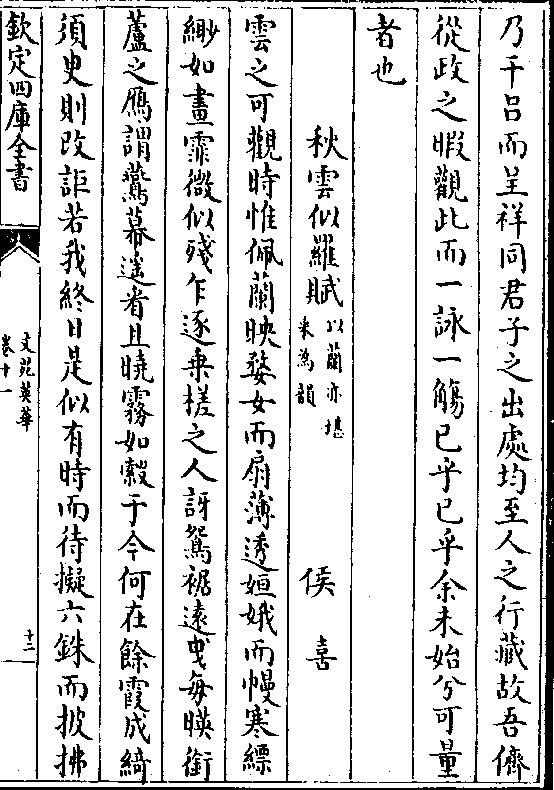 乃干吕而呈祥同君子之出處均至人之行藏故吾儕
從政之暇觀此而一詠一觴已乎已乎余未始兮可量
者也
秋雲似羅賦以蘭亦堪采為韻 侯喜
雲之可觀時惟佩蘭映婺女而扇薄透姮娥而幔寒縹
緲如畫霏微似殘乍逐乗槎之人訝鴛裾遠曵每暎銜
蘆之鴈謂鷰幕遥看且曉霧如縠于今何在餘霞成綺
須臾則改詎若我終日是似有時而待擬六銖而披拂
欽定四庫全書
文苑英華
卷十一
十二